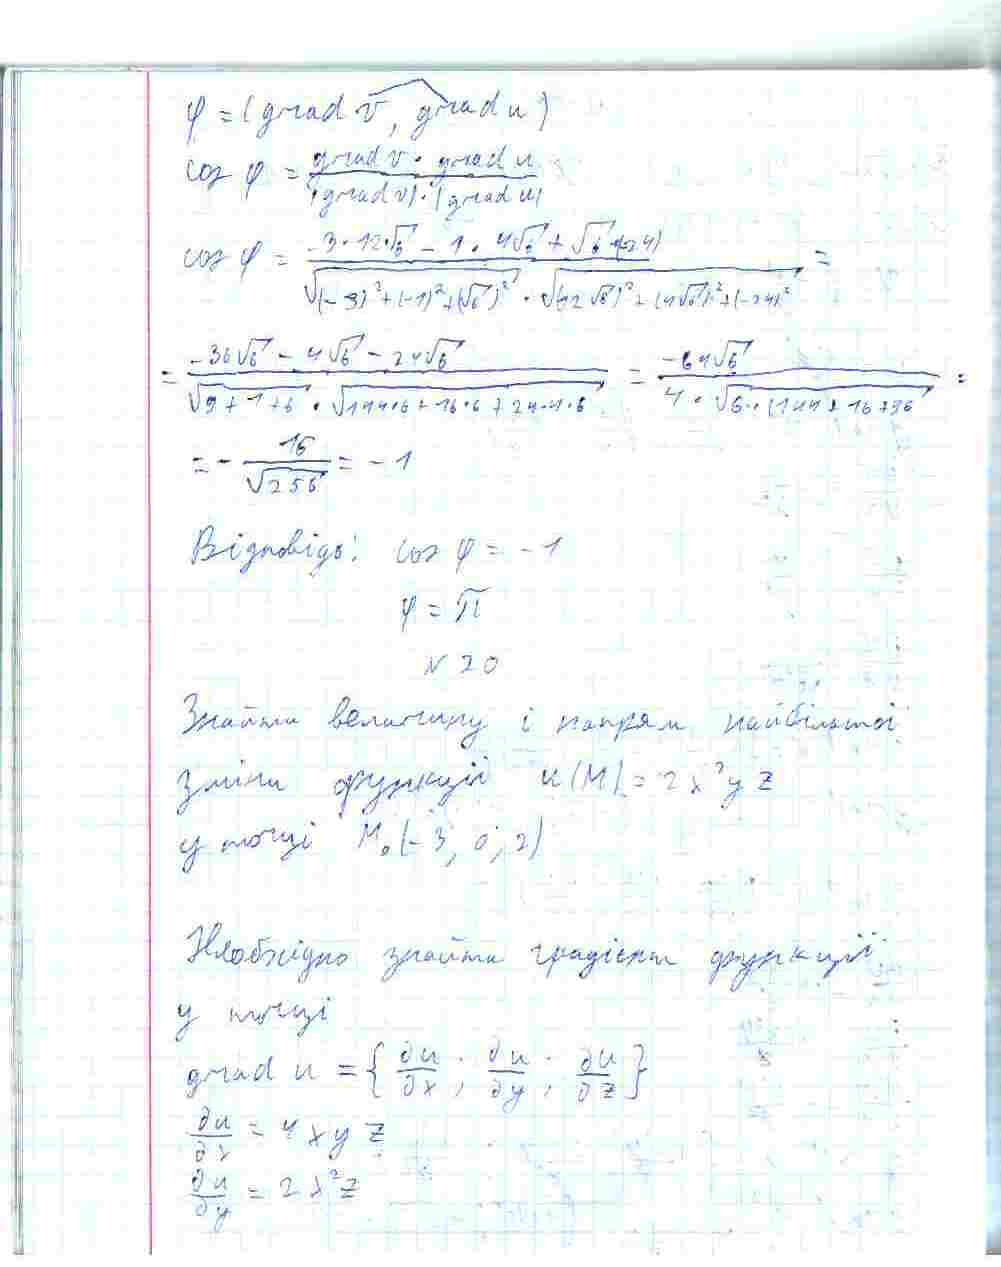 φ = (grad v, grad u)
cos φ = (grad v · grad u) / (|grad v| · |grad u|)
cos φ = (-3·12√6 - 1·4√6 + √6·(-24)) / (√((-3)²+(-1)²+(√6)²) · √((12√6)²+(4√6)²+(-24)²)) =
= (-36√6 - 4√6 - 24√6) / (√(9+1+6) · √(144·6+16·6+24·4·6)) = (-64√6) / (4·√(6·(144+16+96))) =
= - 16/√256 = -1
Відповідь: cos φ = -1
φ = π
№ 20
Знайти величину і напрям найбільшої
зміни функції u(M) = 2x²yz
у точці M₀(-3, 0, 2)
Необхідно знайти градієнт функції
у точці
grad u = {∂u/∂x; ∂u/∂y; ∂u/∂z}
∂u/∂x = 4xyz
∂u/∂y = 2x²z